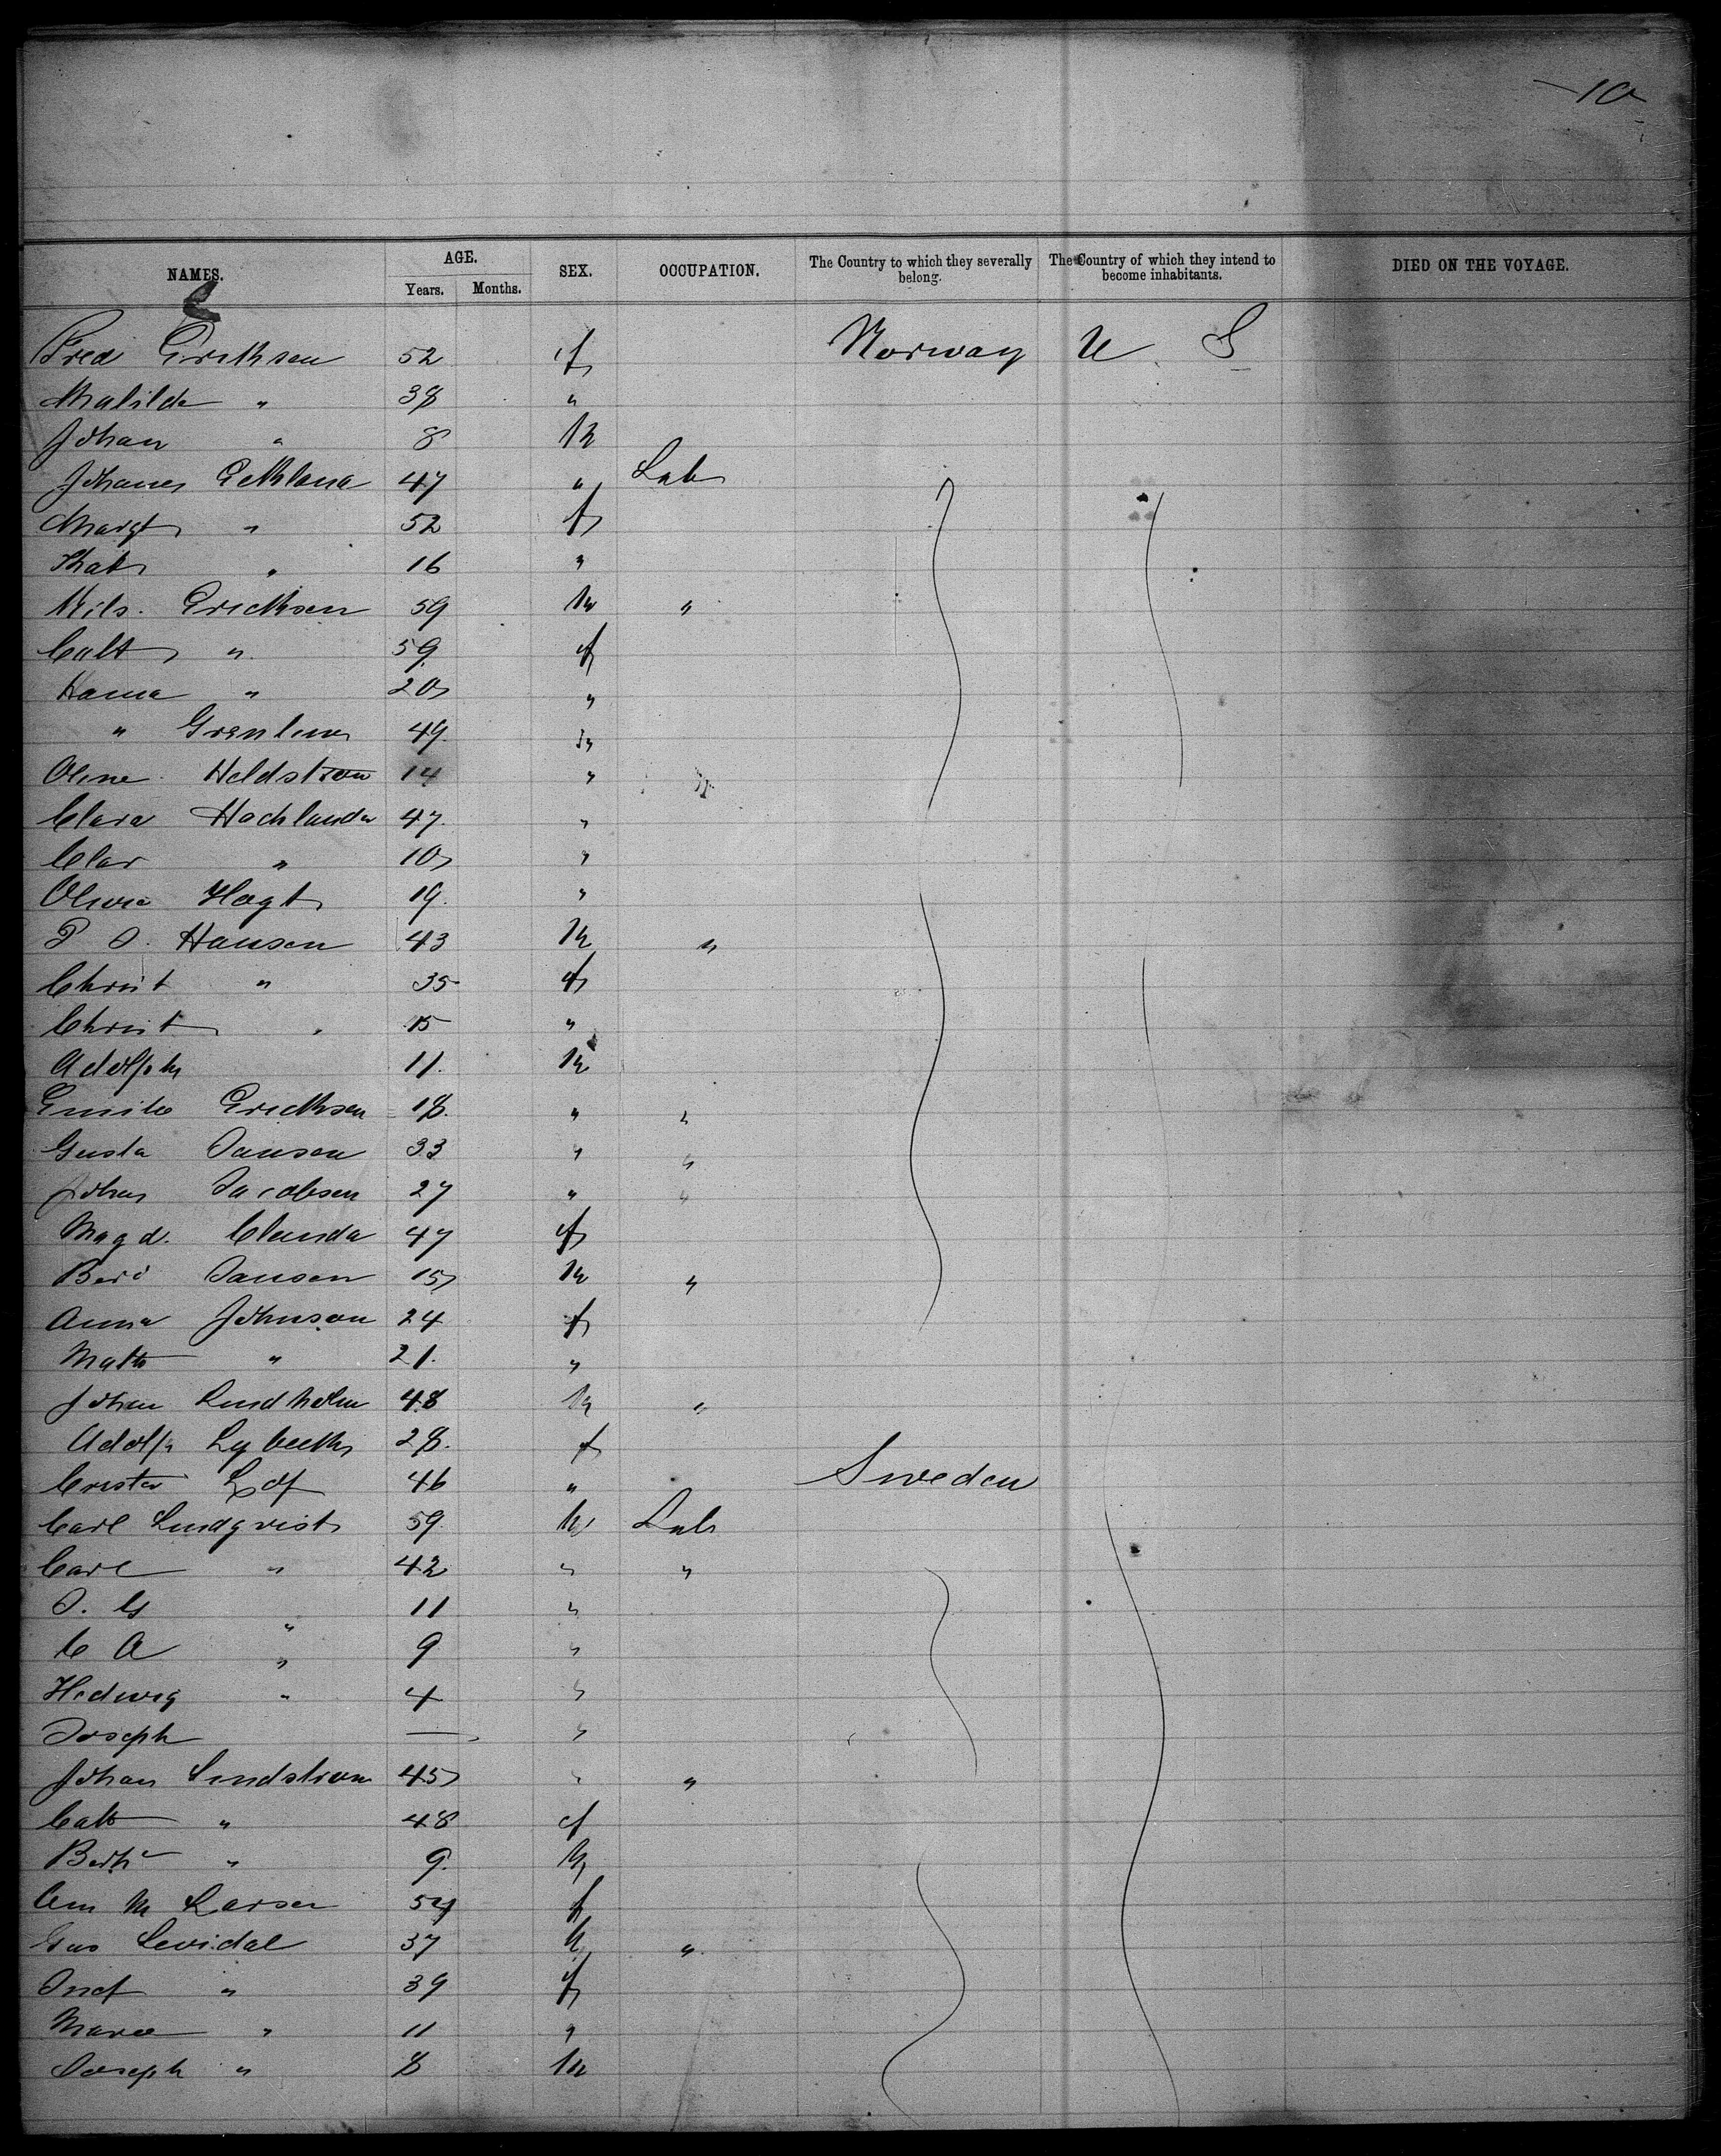 10
NAMES. AGE. Years. Months. SEX. OCCUPATION. The Country to which they severally belong. The Country of which they intend to become inhabitants. DIED ON THE VOYAGE.
Fred Ericksen 52 f Norway U S
Malilda " 38 "
Johan " 8 m
Johanes 47 " Lab
Margt " 52 f
" 16 "
Nils. Ericksen 59 m "
" 59 f
Hanna " 20 "
" 49 "
Oline Heldstrom 14 "
Clara Hochlander 47 "
Clar " 10 "
Olivia Hagt 19 "
P O. Hansen 43 m "
Christ " 35 f
Christ " 15 "
Adolph 11 m
Emile Ericksen 18 " "
Gusta Jansen 33 " "
Johan Jacobsen 27 " "
Magd. 47 f
Jansen 15 m "
Anna Johnson 24 f
Matt " 21 "
Johan Lindholm 48 m "
Adolf 28 f
Löf 46 " Sweden
Carl Lindqvist 59 m Lab
Carl " 42 " "
J. G " 11 "
C A " 9 "
Hedwig " 4 "
Joseph — "
Johan Lindstrom 45 " "
Cath " 48 f
" 9 m
Ann M Larsen 54 f
Gus Levidal 37 m "
" 39 f
Marie " 11 "
Joseph " 8 m